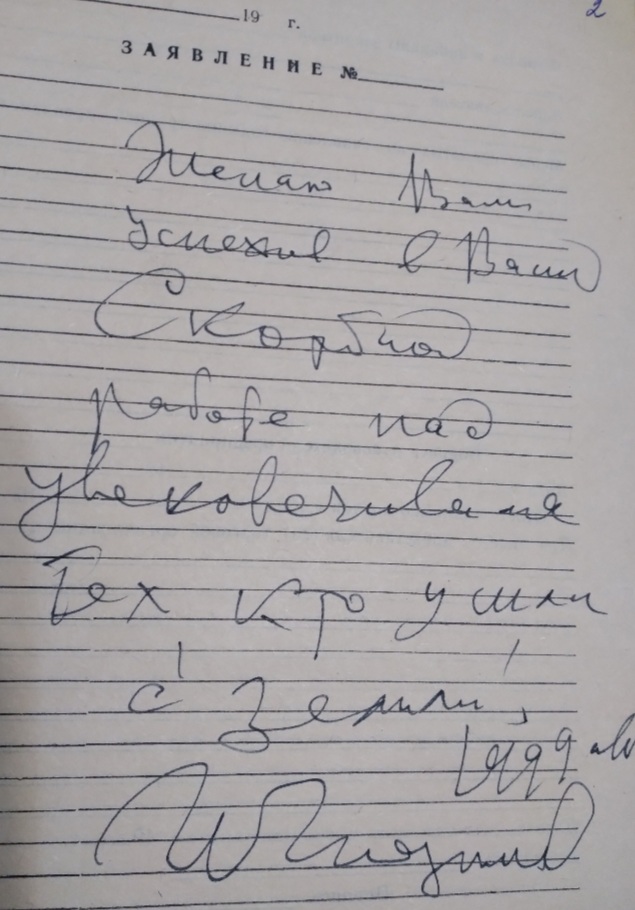 2
19 г.
ЗАЯВЛЕНИЕ №
Желаю Вам
успехов в Вашей
Скорбной
работе над
увековечивание
тех кто ушли
с Земли,
1999